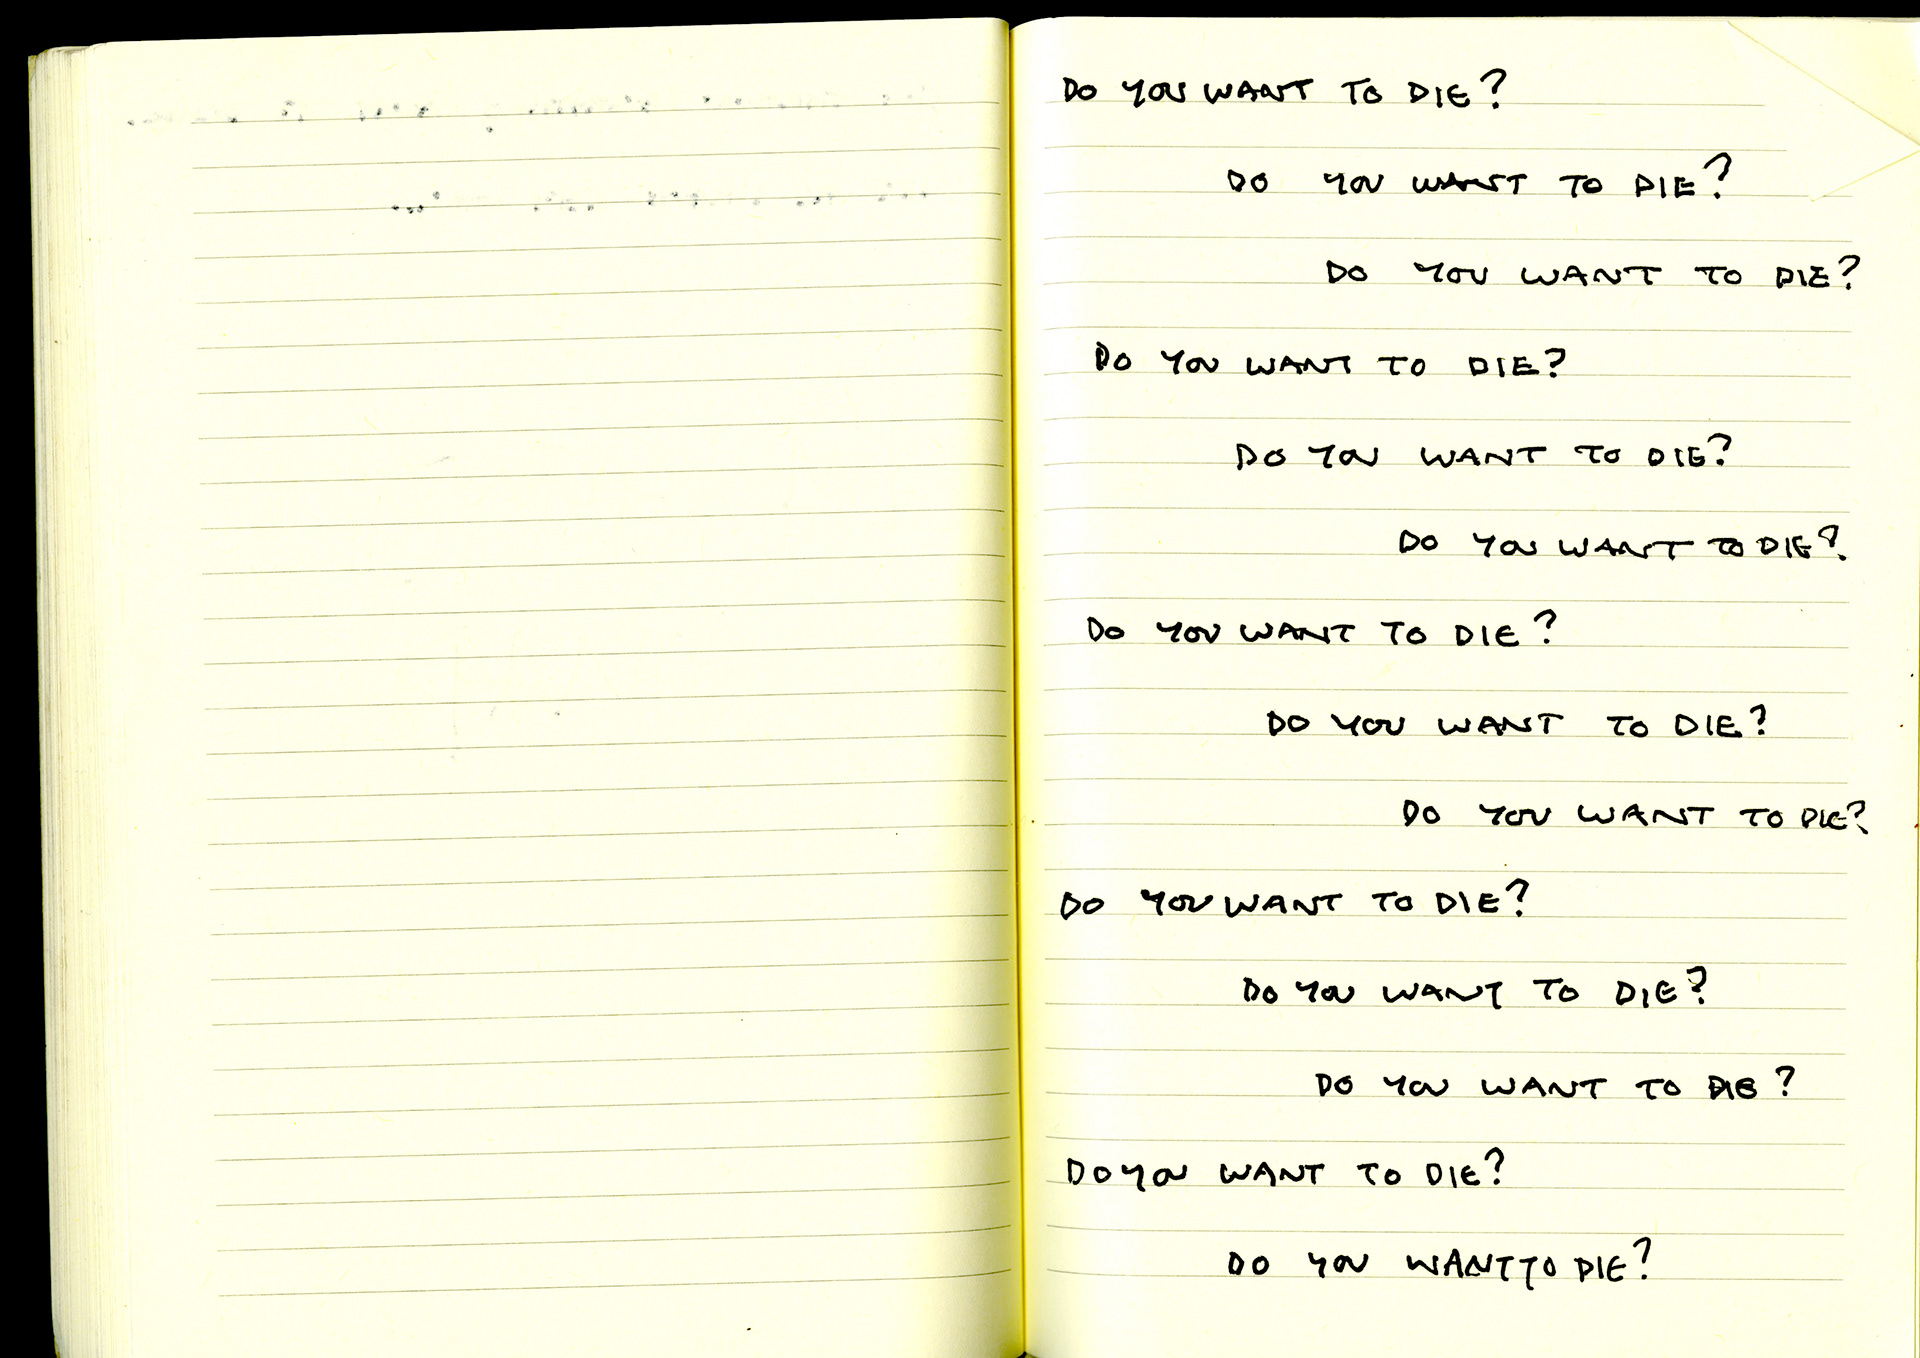 DO YOU WANT TO DIE?
DO YOU WANT TO DIE?
DO YOU WANT TO DIE?
DO YOU WANT TO DIE?
DO YOU WANT TO DIE?
DO YOU WANT TO DIE?
DO YOU WANT TO DIE?
DO YOU WANT TO DIE?
DO YOU WANT TO DIE?
DO YOU WANT TO DIE?
DO YOU WANT TO DIE?
DO YOU WANT TO DIE?
DO YOU WANT TO DIE?
DO YOU WANT TO DIE?